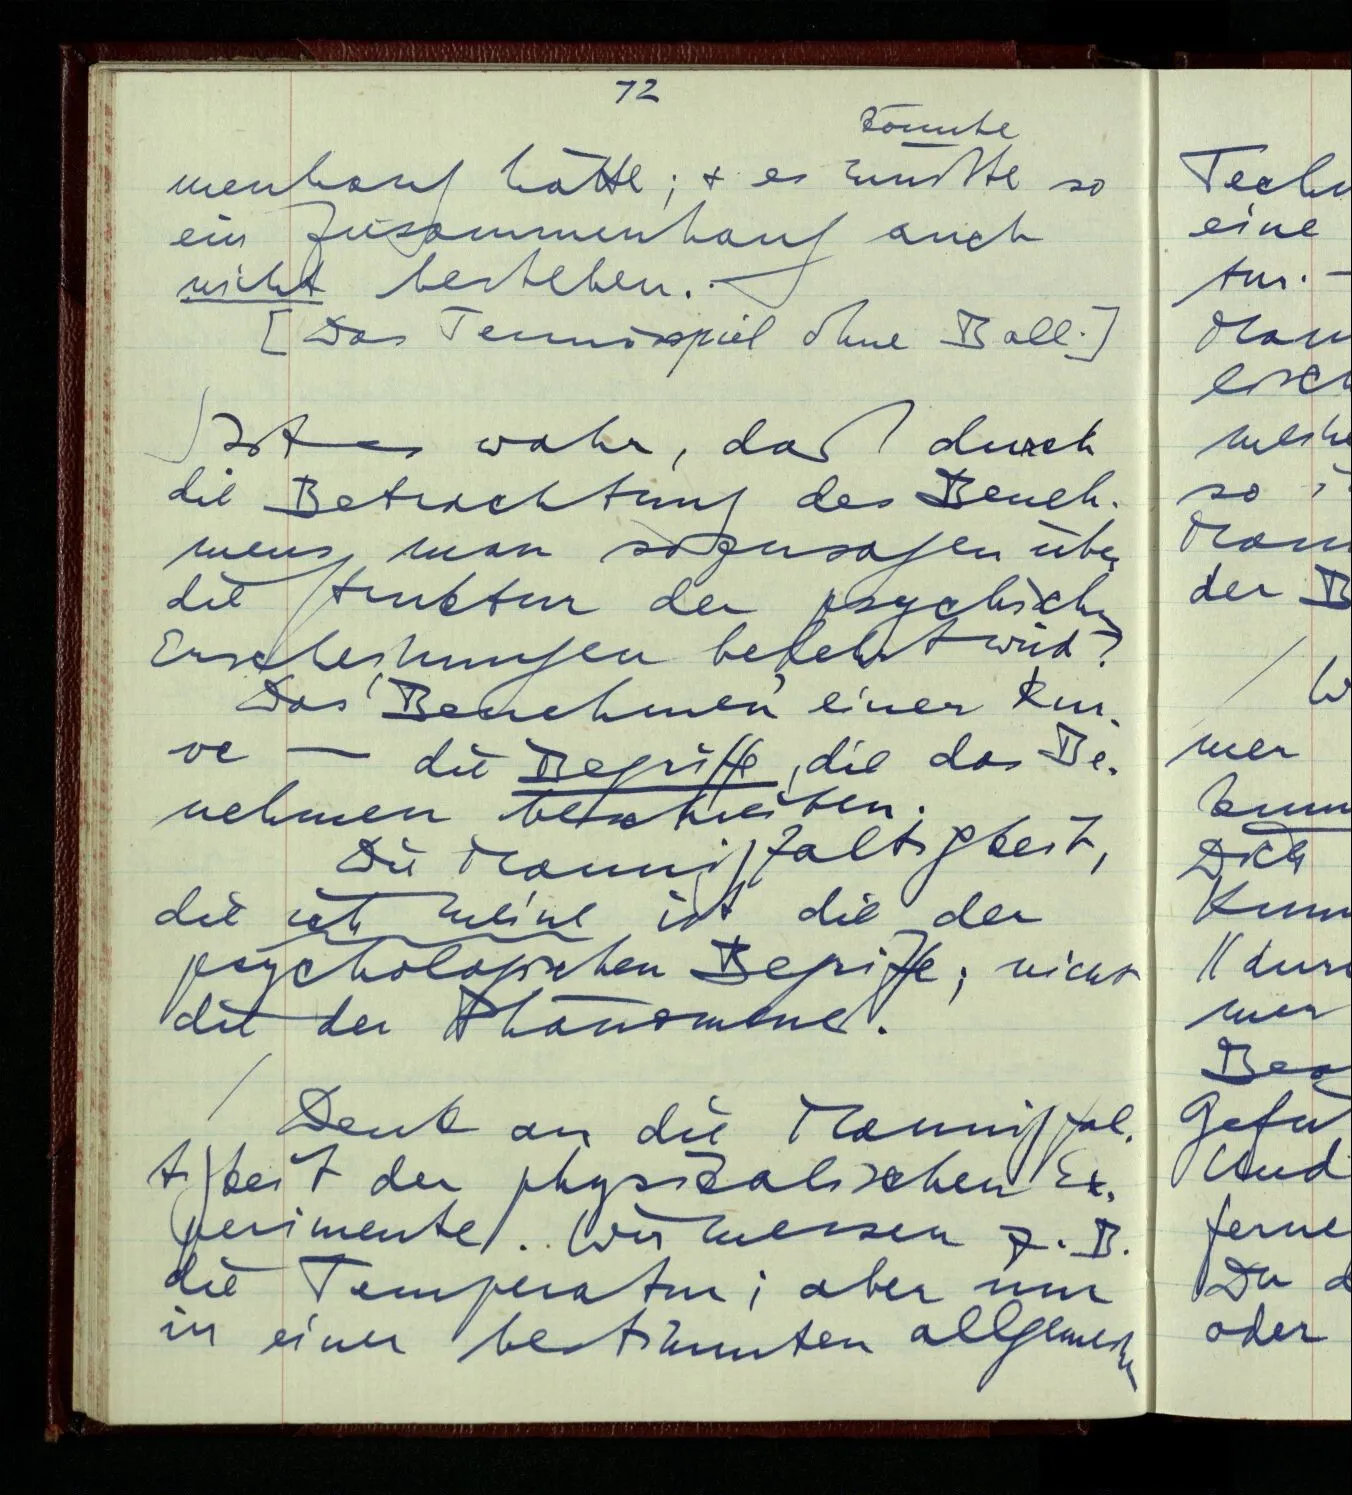 72
könnte
menhang hätte; + es müßte so
ein Zusammenhang auch
nicht bestehen. —
[Das Tennisspiel ohne Ball.]
Ist es wahr, daß durch
die Betrachtung des Beneh-
mens, man sozusagen über
die Struktur der psychischen
Erscheinungen belehrt wird?
Das 'Benehmen' einer Kur-
ve — die Begriffe, die das Be-
nehmen beschreiben.
Die Mannigfaltigkeit,
die ich meine ist die der
psychologischen Begriffe; nicht
die der Phänomene.
/ Denk an die Mannigfal-
tigkeit der physikalischen Ex-
perimente. Wir messen z. B.
die Temperatur; aber nur
in einer bestimmten allgemeinen
eine
so
der B
mer
Dich
mer
Und
ferne
Du d
oder